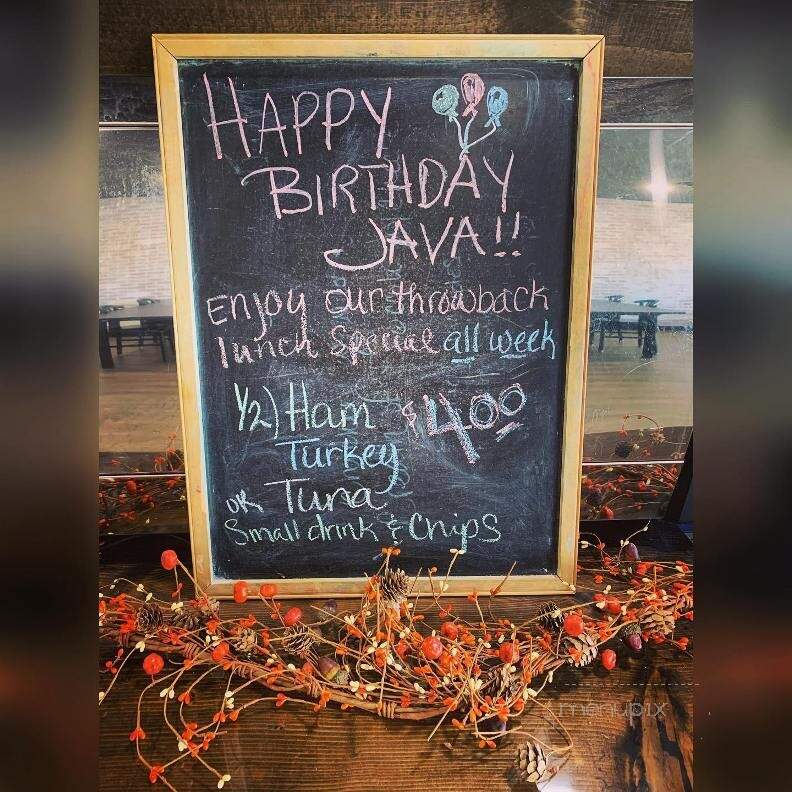 HAPPY
BIRTHDAY
JAVA!!
Enjoy our throwback
lunch special all week
1/2) Ham $4.00
Turkey
or Tuna
Small drink & Chips
menupix